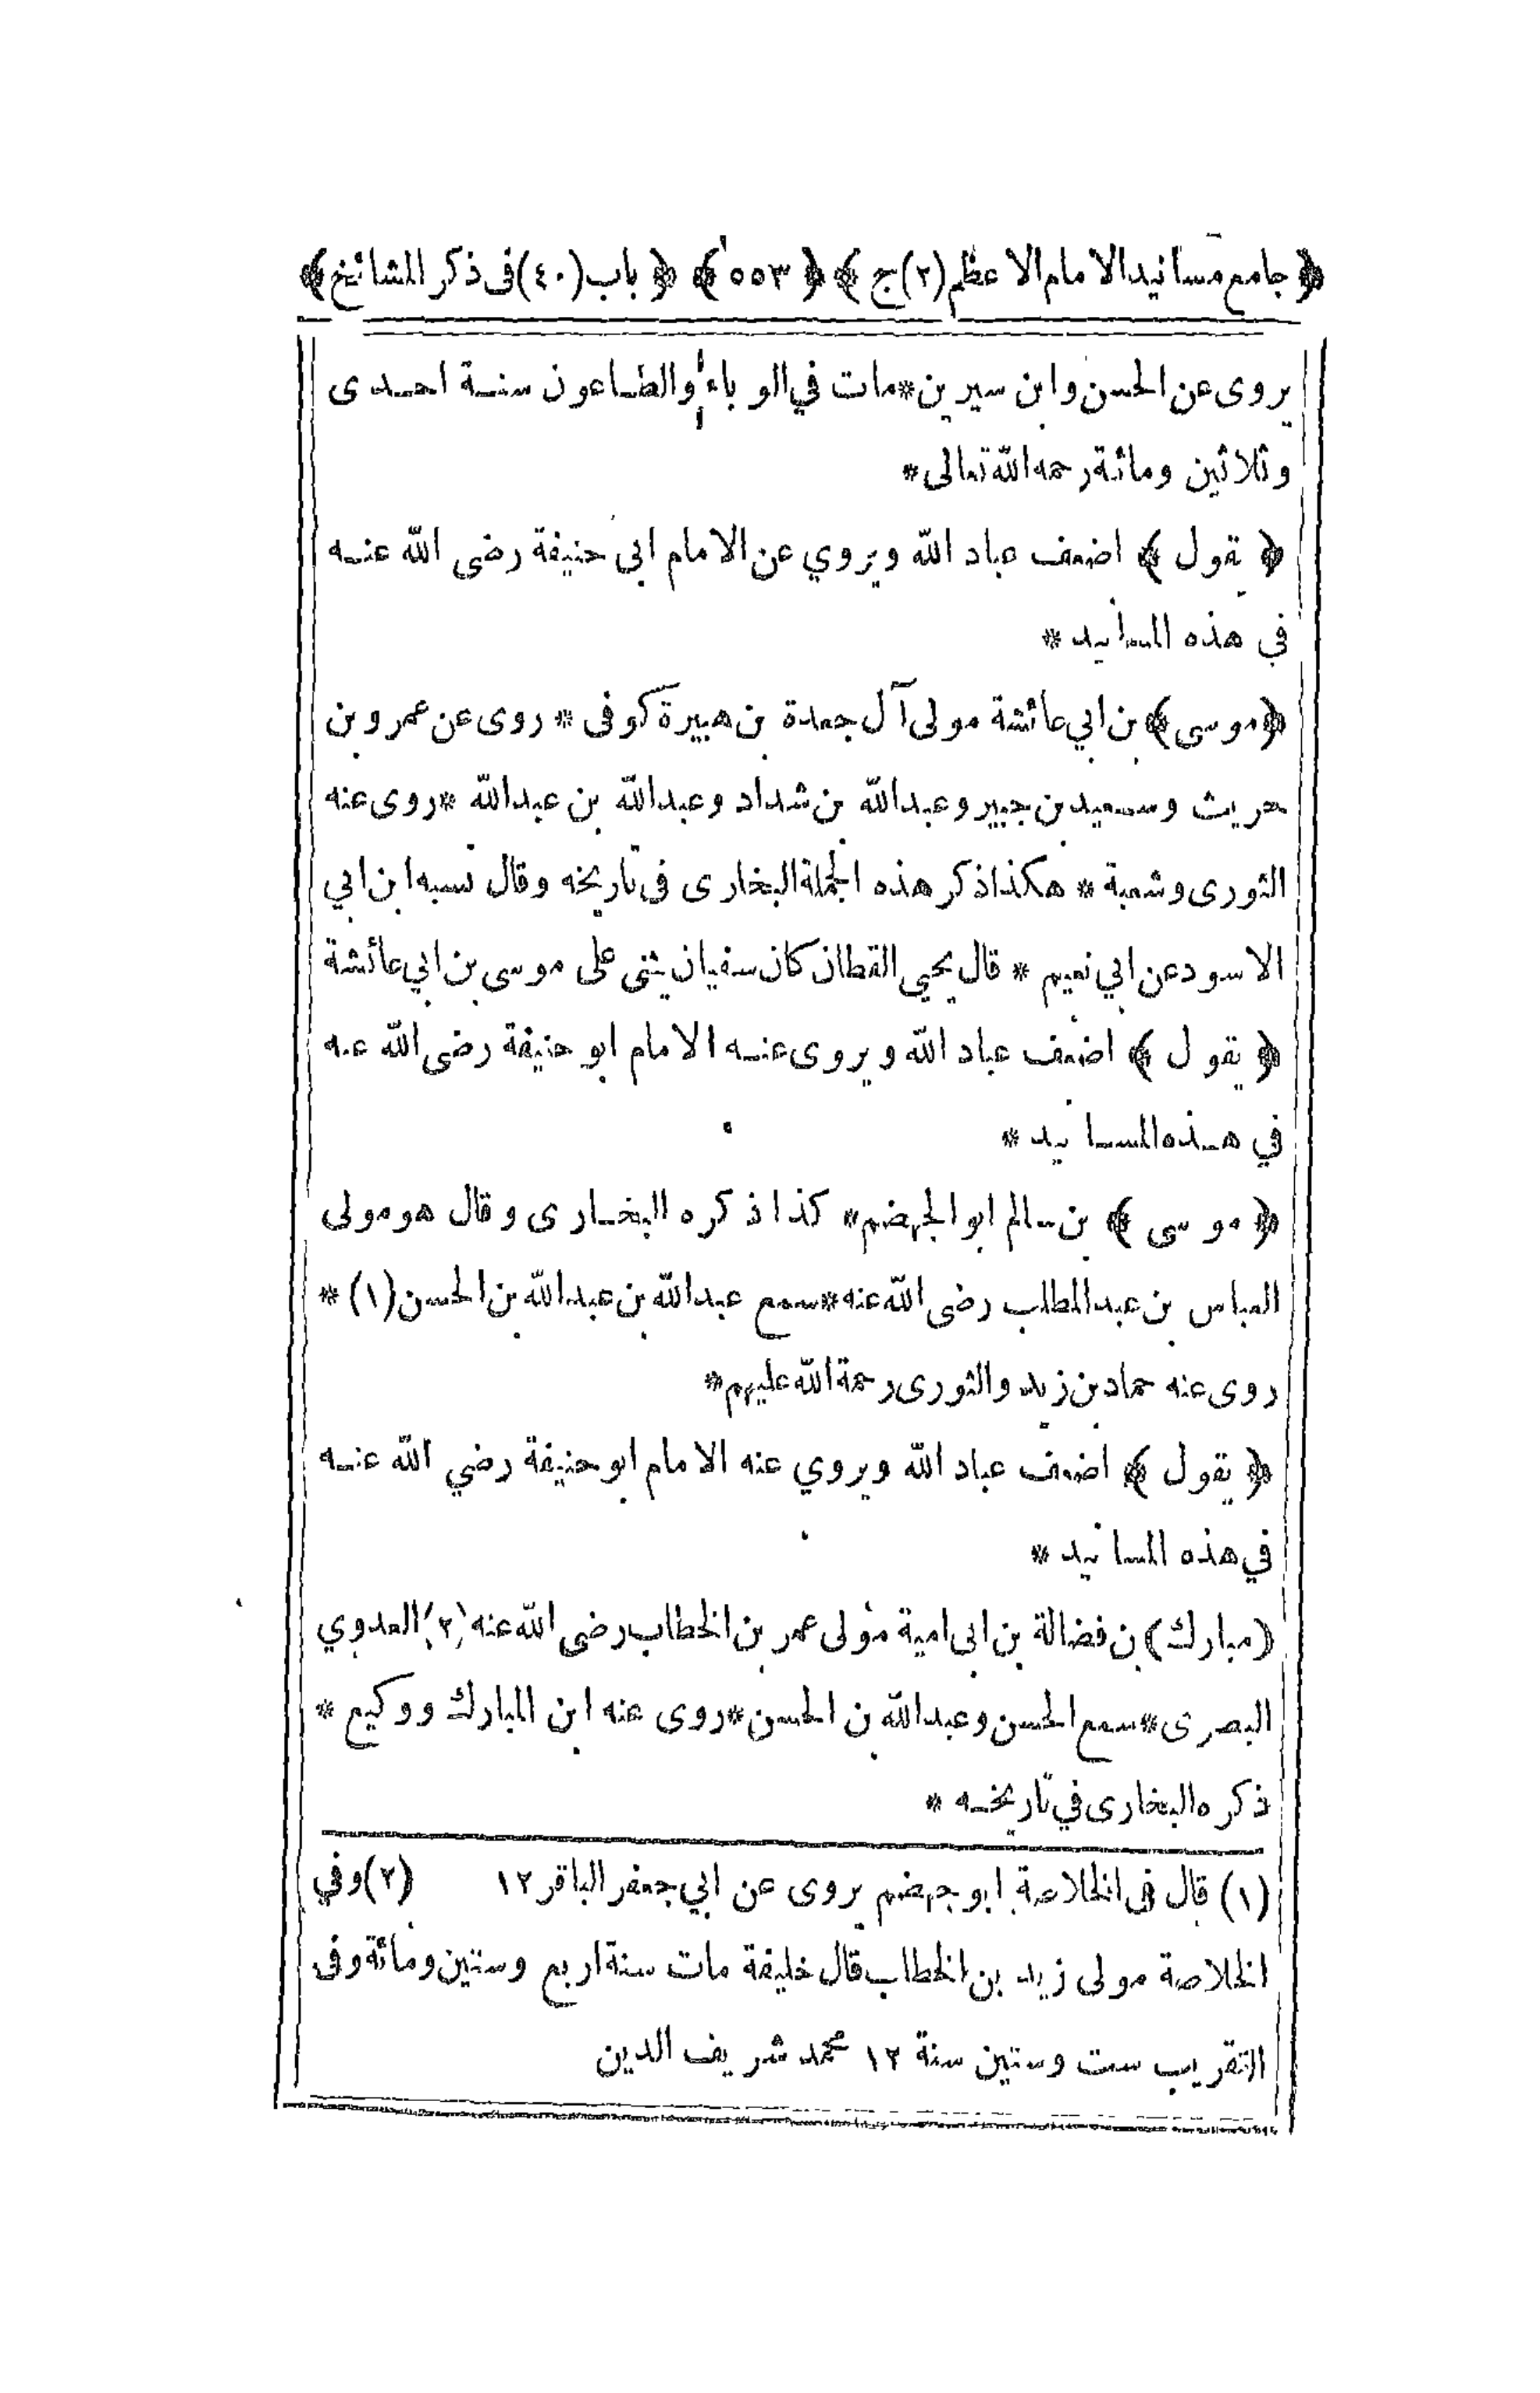 ﴿ جامع مسانيد الامام الاعظم (٢) ج ﴾ ﴿ ٥٥٣ ﴾ ﴿ باب (٤٠) فى ذكر المشائخ ﴾
يروى عن الحسن وابن سيرين * مات في الوباء والطاعون سنة احدى
وثلاثين ومائة رحمه الله تعالى *
﴿ يقول ﴾ اضعف عباد الله ويروي عن الامام ابى حنيفة رضى الله عنه
في هذه المسانيد *
﴿ موسى ﴾ بن ابي عائشة مولى آل جعدة بن هبيرة كوفى * روى عن عمرو بن
حريث وسعيد بن جبير وعبد الله بن شداد وعبد الله بن عبد الله * روى عنه
الثورى وشعبة * هكذا ذكر هذه الجملة البخارى فى تاريخه وقال نسبه ابن ابي
الاسود عن ابي نعيم * قال يحيى القطان كان سفيان يثنى على موسى بن ابي عائشة
﴿ يقول ﴾ اضعف عباد الله ويروى عنه الامام ابو حنيفة رضى الله عنه
في هذه المسانيد *
﴿ موسى ﴾ بن سالم ابو الجهضم * كذا ذكره البخارى وقال هو مولى
العباس بن عبد المطلب رضى الله عنه * سمع عبد الله بن عبد الله بن الحسن (١) *
روى عنه حماد بن زيد والثورى رحمة الله عليهم *
﴿ يقول ﴾ اضعف عباد الله ويروي عنه الامام ابو حنيفة رضي الله عنه
في هذه المسانيد *
(مبارك) بن فضالة بن ابى امية مولى عمر بن الخطاب رضى الله عنه (٢) العدوي
البصرى * سمع الحسن وعبد الله بن الحسن * روى عنه ابن المبارك ووكيع *
ذكره البخارى في تاريخه *
(١) قال فى الخلاصة ابو جهضم يروى عن ابي جعفر الباقر ١٢ (٢) وفي
الخلاصة مولى زيد بن الخطاب قال خليفة مات سنة اربع وستين ومائة وفى
التقريب ست وستين سنة ١٢ محمد شريف الدين